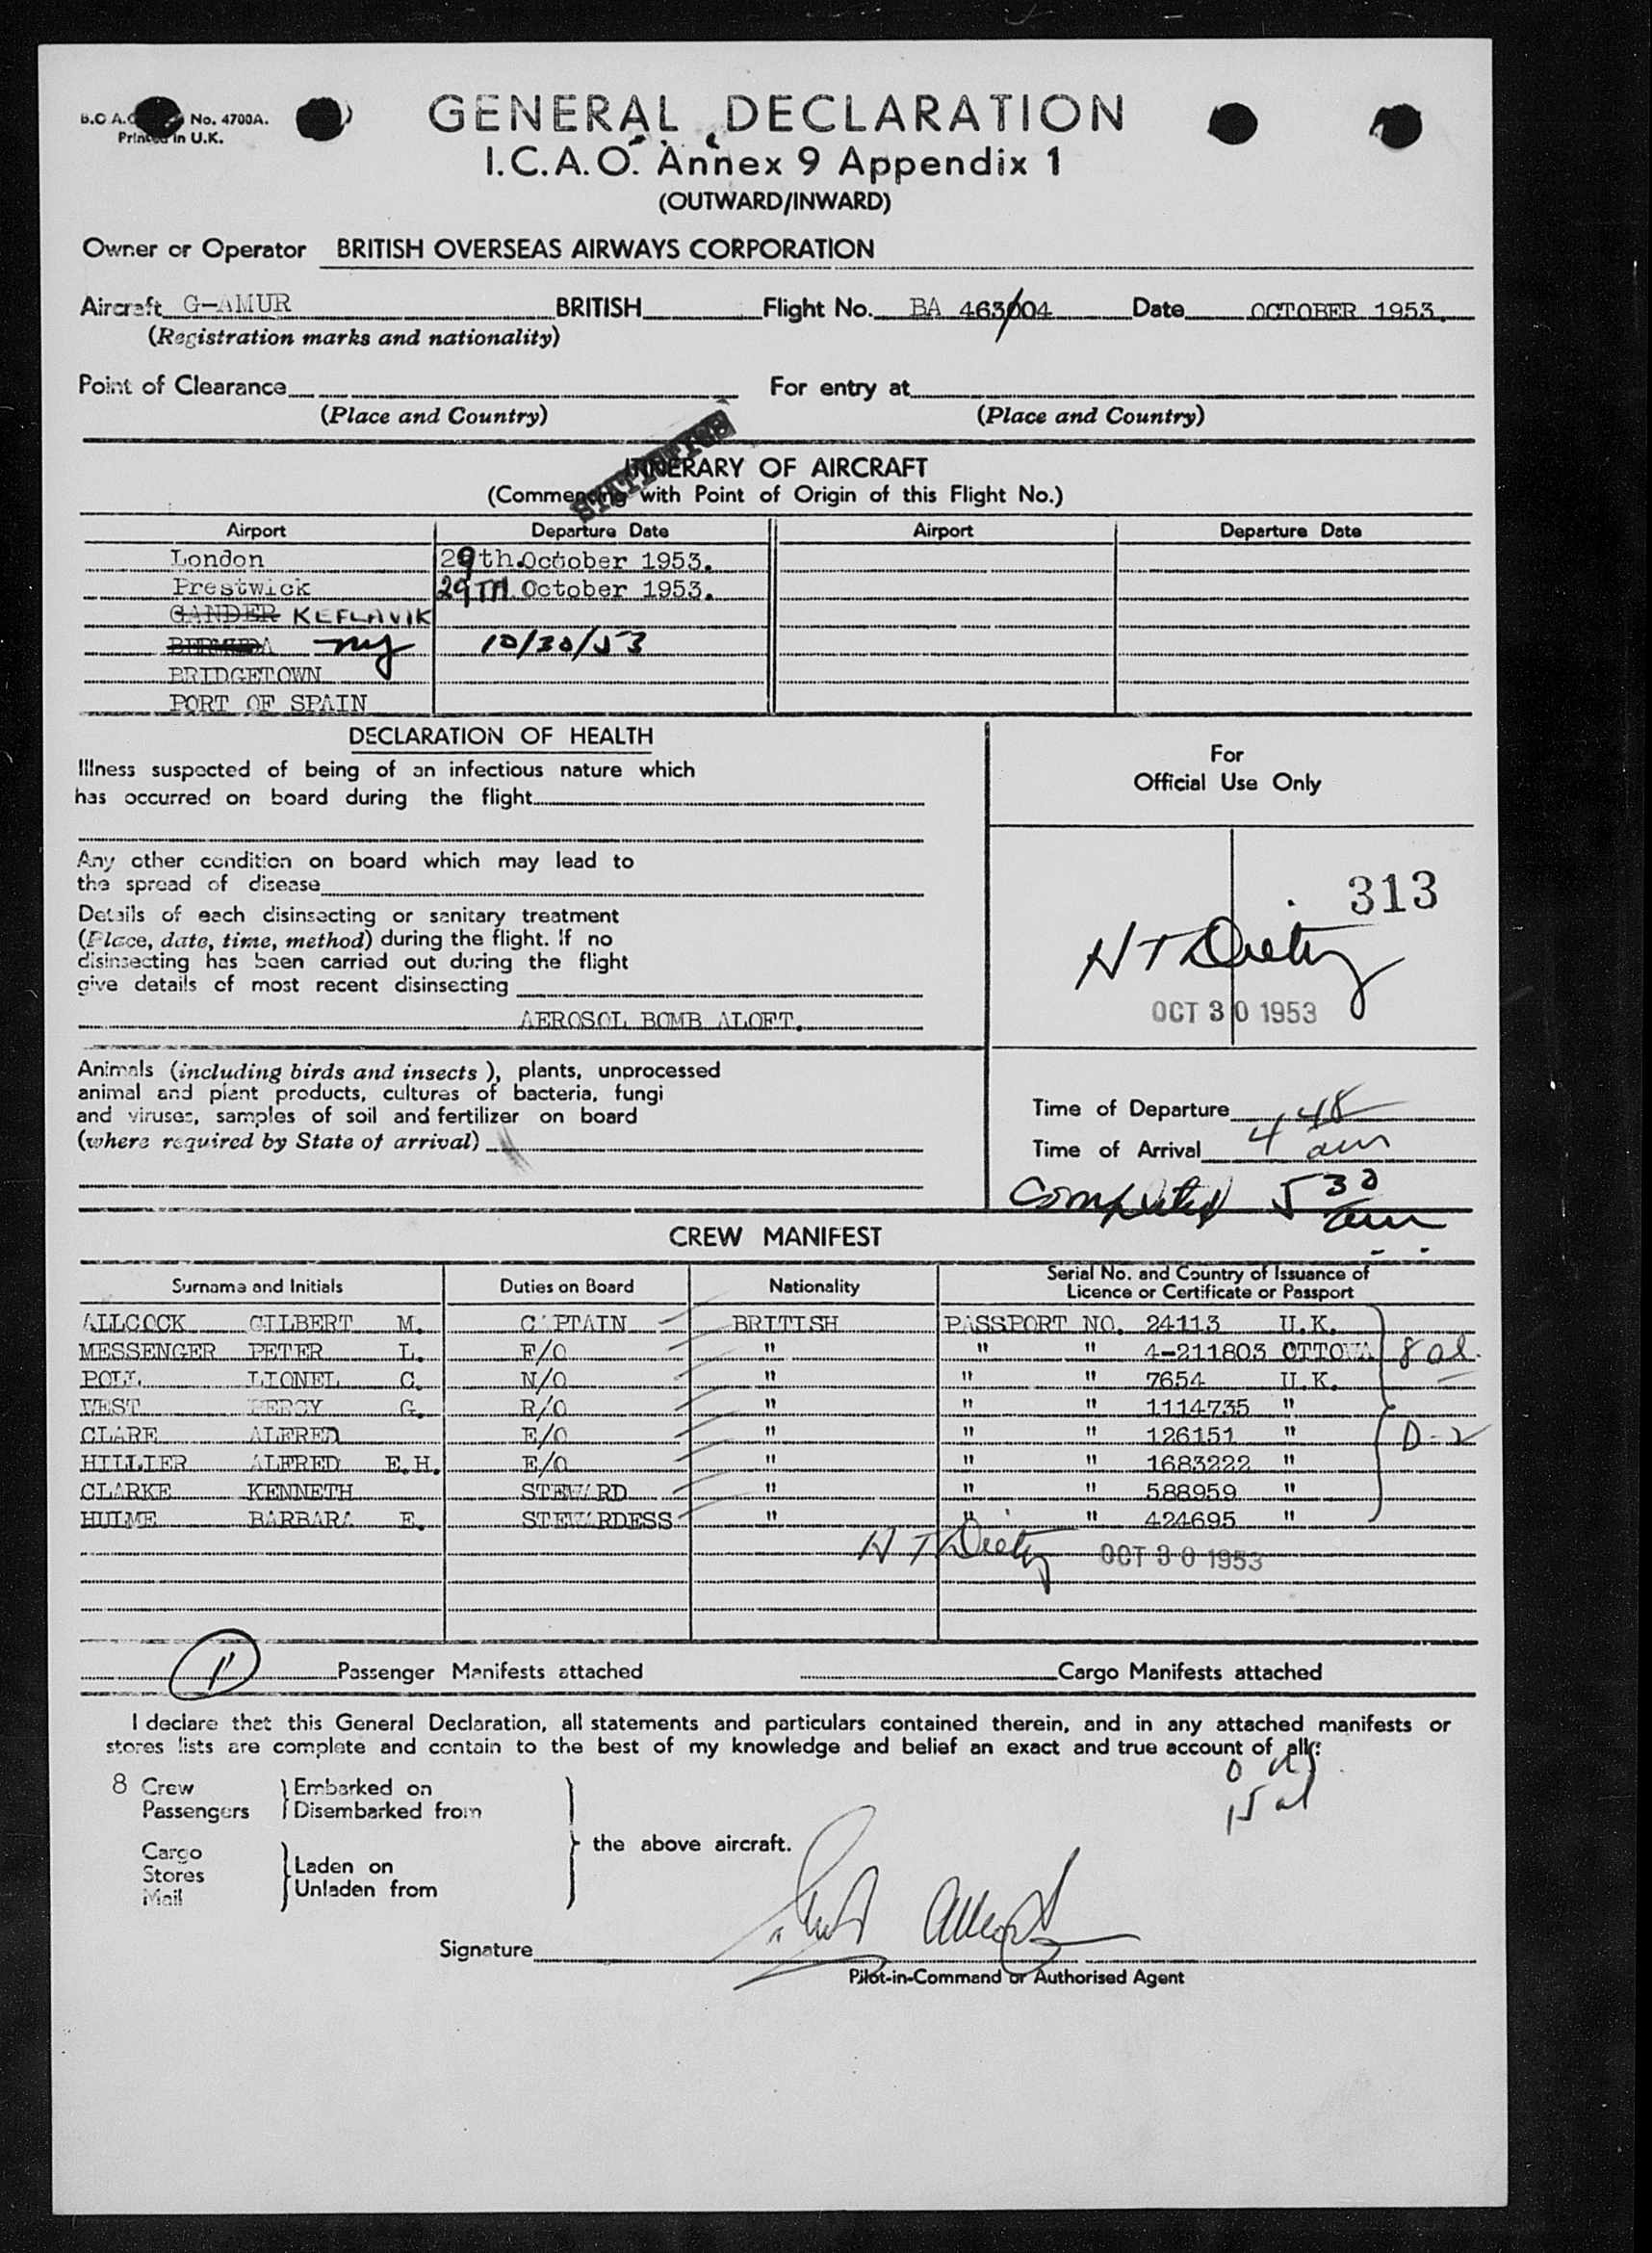 B.O.A.C. No. 4700A.
Printed in U.K.
GENERAL DECLARATION
I.C.A.O. Annex 9 Appendix 1
(OUTWARD/INWARD)
Owner or Operator BRITISH OVERSEAS AIRWAYS CORPORATION
Aircraft G-AMUR BRITISH Flight No. BA 463/004 Date OCTOBER 1953.
(Registration marks and nationality)
Point of Clearance For entry at
(Place and Country) (Place and Country)
ITINERARY OF AIRCRAFT
(Commencing with Point of Origin of this Flight No.)
Airport Departure Date Airport Departure Date
London 29th October 1953.
Prestwick 29TH October 1953.
GANDER KEFLAVIK
BERMUDA NY 10/30/53
BRIDGETOWN
PORT OF SPAIN
DECLARATION OF HEALTH
Illness suspected of being of an infectious nature which
has occurred on board during the flight
Any other condition on board which may lead to
the spread of disease
Details of each disinsecting or sanitary treatment
(Place, date, time, method) during the flight. If no
disinsecting has been carried out during the flight
give details of most recent disinsecting
AEROSOL BOMB ALOFT.
Animals (including birds and insects), plants, unprocessed
animal and plant products, cultures of bacteria, fungi
and viruses, samples of soil and fertilizer on board
(where required by State of arrival)
For
Official Use Only
313
H T Dietz
OCT 30 1953
Time of Departure
Time of Arrival 4 48 am
Completed 5 30 am
CREW MANIFEST
Surname and Initials Duties on Board Nationality Serial No. and Country of Issuance of
Licence or Certificate or Passport
ALLCOCK GILBERT M. CAPTAIN BRITISH PASSPORT NO. 24113 U.K.
MESSENGER PETER L. F/O " " " 4-211803 OTTOWA
POLL LIONEL C. N/O " " " 7654 U.K.
WEST PERCY G. R/O " " " 1114735 "
CLARE ALFRED E/O " " " 126151 "
HILLIER ALFRED E.H. E/O " " " 1683222 "
CLARKE KENNETH STEWARD " " " 588959 "
HULME BARBARA E. STEWARDESS " " " 424695 "
8 al.
D-2
H T Dietz OCT 30 1953
1 Passenger Manifests attached Cargo Manifests attached
I declare that this General Declaration, all statements and particulars contained therein, and in any attached manifests or
stores lists are complete and contain to the best of my knowledge and belief an exact and true account of all:
15 al
8 Crew Embarked on
Passengers Disembarked from
the above aircraft.
Cargo
Stores Laden on
Mail Unladen from
Signature
Pilot-in-Command or Authorised Agent